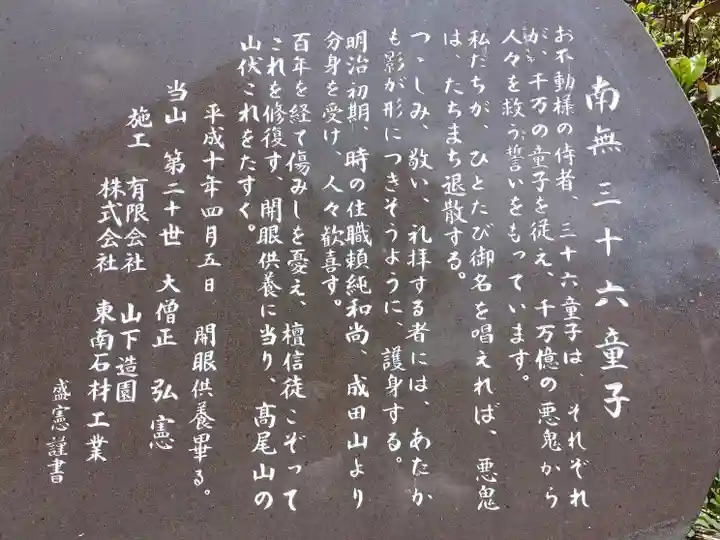 南無三十六童子
お不動様の侍者、三十六童子は、それぞれ
が、千万の童子を従え、千万億の悪鬼から
人々を救う誓いをもっています。
私たちが、ひとたび御名を唱えれば、悪鬼
は、たちまち退散する。
つゝしみ、敬い、礼拝する者には、あたか
も影が形につきそうように、護身する。
明治初期、時の住職頼純和尚、成田山より
分身を受け、人々歓喜す。
百年を経て傷みしを憂え、檀信徒こぞって
これを修復す、開眼供養に当り、髙尾山の
山伏これをたすく。
平成十年四月五日 開眼供養畢る。
当山 第二十世 大僧正 弘憲
施工 有限会社 山下造園
株式会社 東南石材工業
盛憲謹書